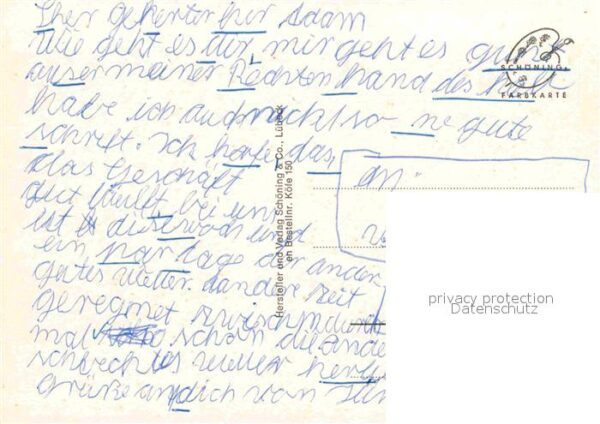 Sher geherter her Adam
wie geht es dir, mir geht es gut
auser meiner Rechten hand des hal
habe ich auch nicht so ne gute
schrift. Ich hoffe das
das Geschäft
gut läuft bei un
ist es dieser und
ein par tage der ander
gutes wetter. dan der zeit
geregnet zwischendurch
mal schon die ande
schlechtes wetter her
grüße an dich von
an:
SCHÖNING
FARBKARTE
Hersteller und Verlag Schöning & Co., Lübeck
en Bestellnr. Köfe 150
privacy protection
Datenschutz